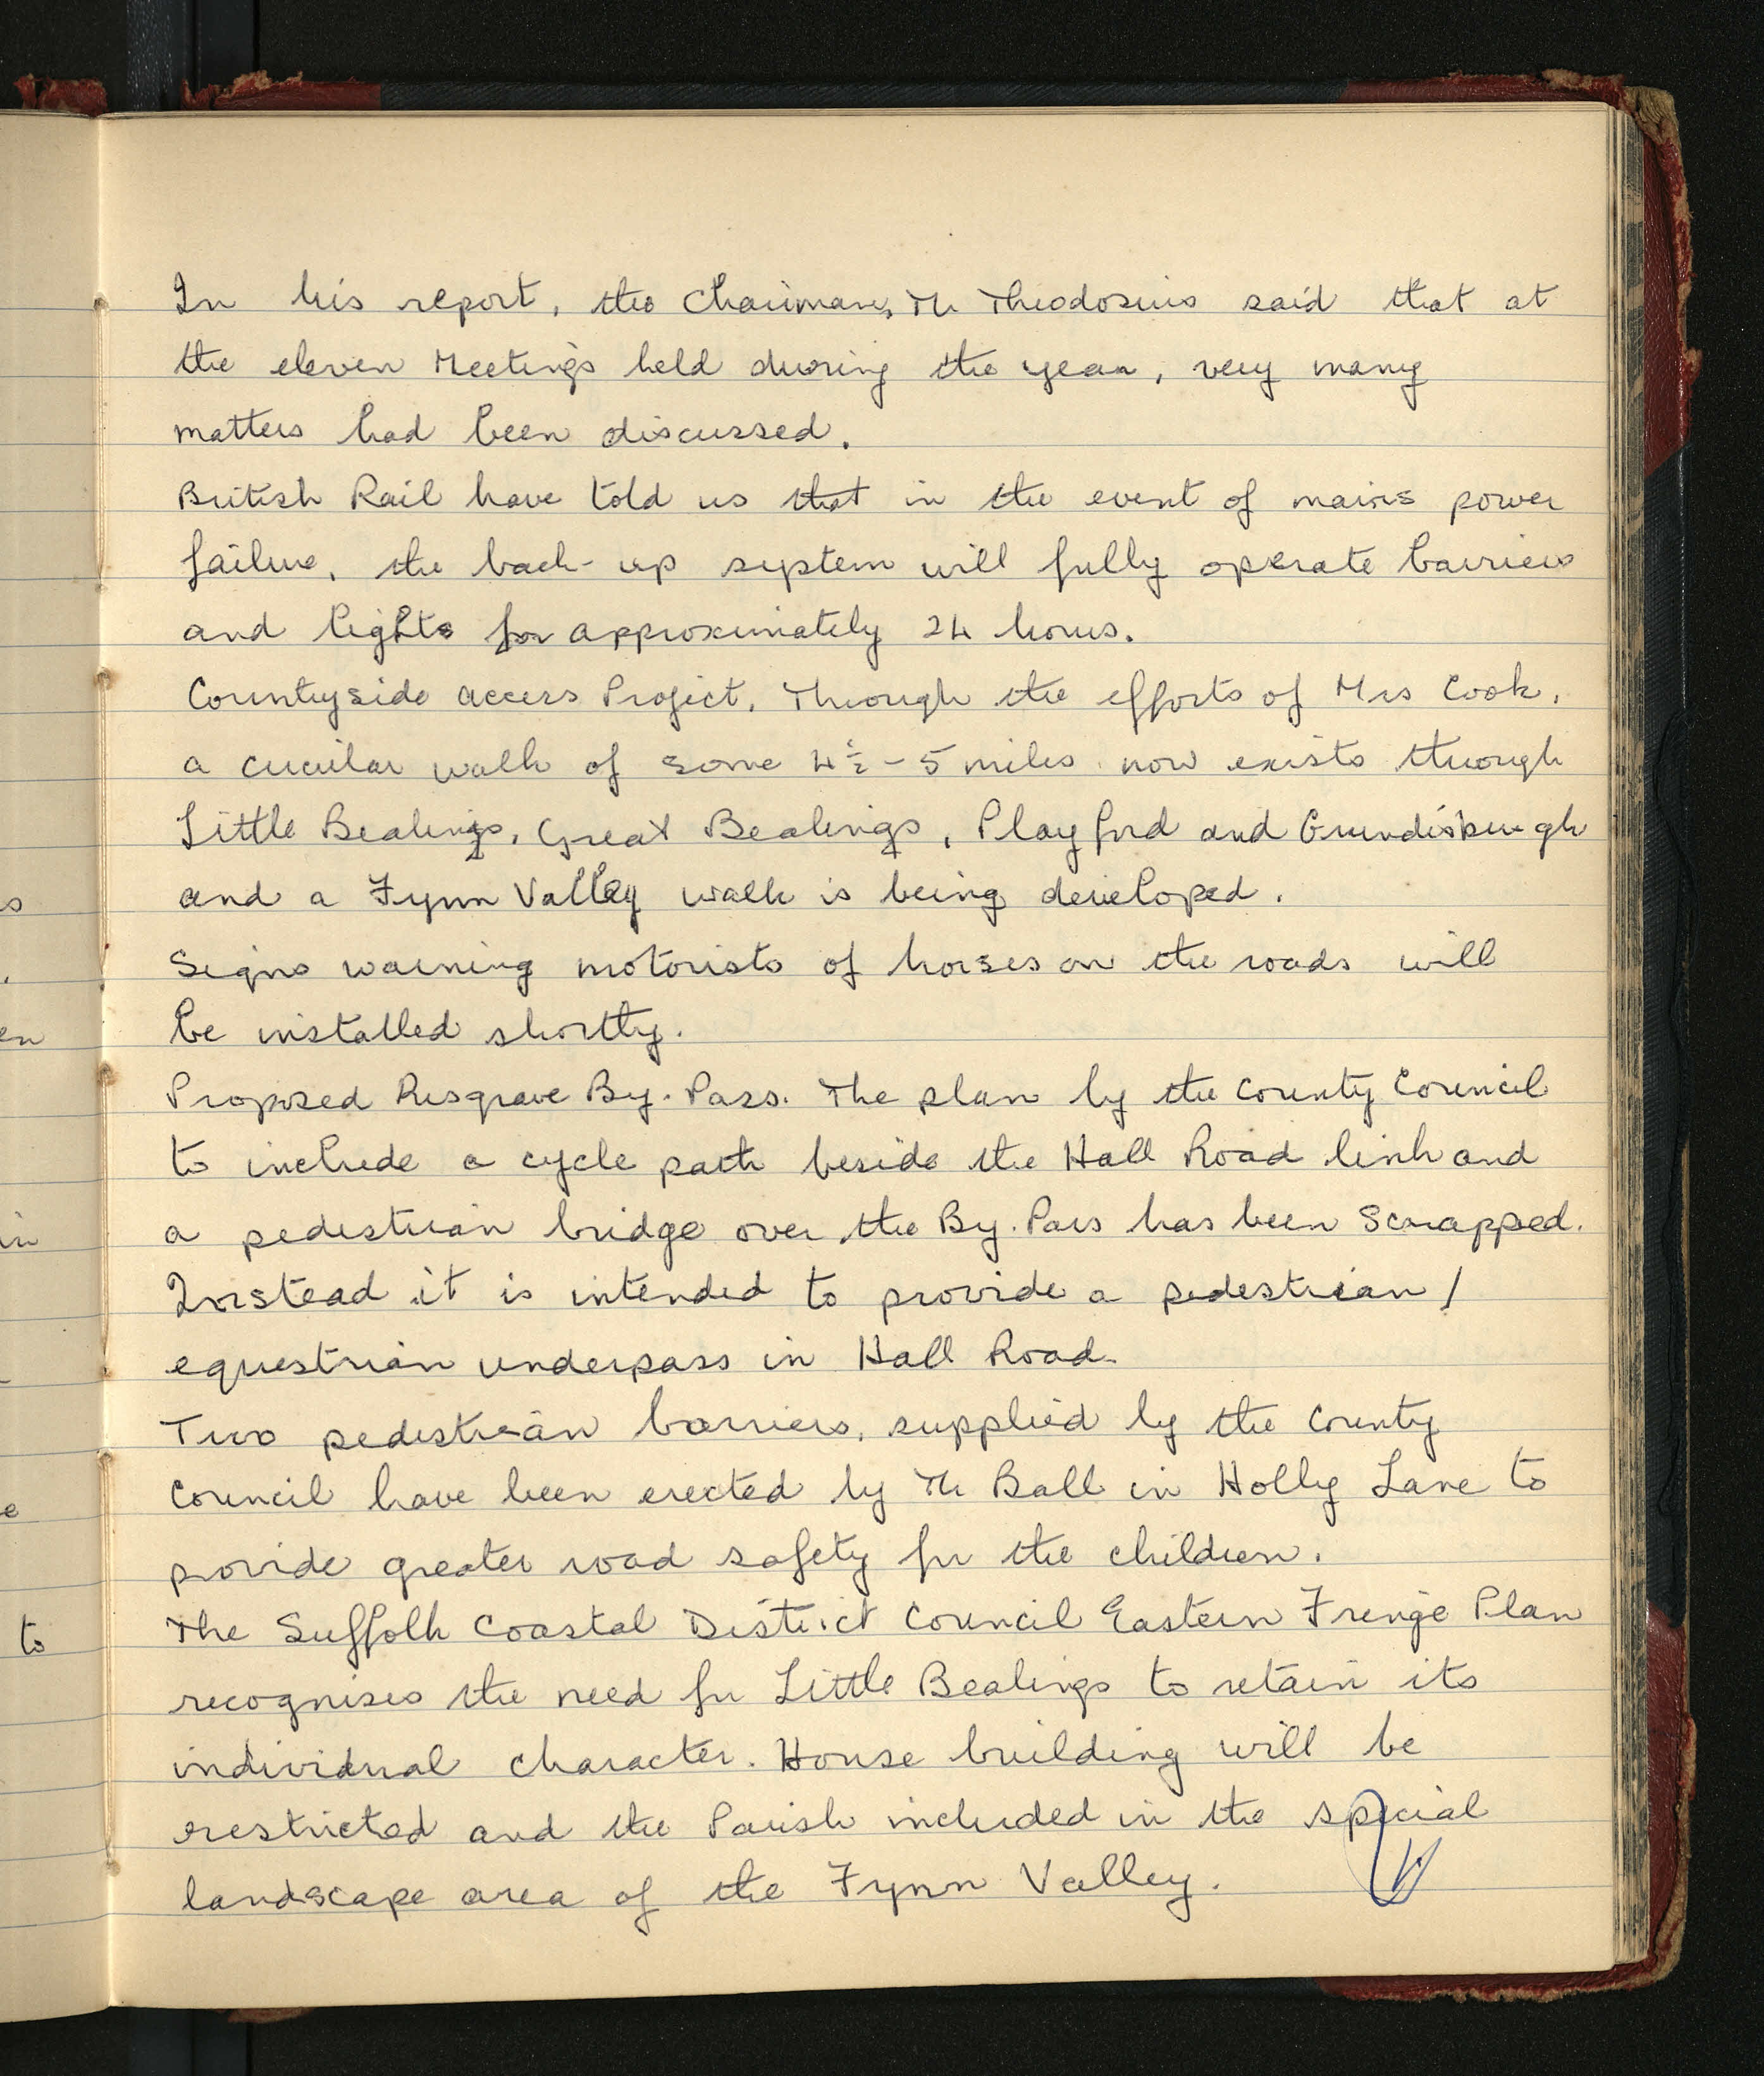 In his report, the Chairman, Mr Theodosius said that at
the eleven Meetings held during the year, very many
matters had been discussed.
British Rail have told us that in the event of mains power
failure, the back-up system will fully operate barriers
and lights for approximately 24 hours.
Countryside access Project. Through the efforts of Mrs Cook,
a circular walk of some 4½-5 miles now exists through
Little Bealings, Great Bealings, Playford and Grundisburgh
and a Fynn Valley walk is being developed.
Signs warning motorists of horses on the roads will
be installed shortly.
Proposed Kesgrave By-Pass. The plan by the County Council
to include a cycle path beside the Hall Road link and
a pedestrian bridge over the By-Pass has been Scrapped.
Instead it is intended to provide a pedestrian/
equestrian underpass in Hall Road.
Two pedestrian barriers, supplied by the County
Council have been erected by Mr Ball in Holly Lane to
provide greater road safety for the children.
The Suffolk Coastal District Council Eastern Fringe Plan
recognises the need for Little Bealings to retain its
individual character. House building will be
restricted and the Parish included in the special
landscape area of the Fynn Valley.
s
en
in
e
to